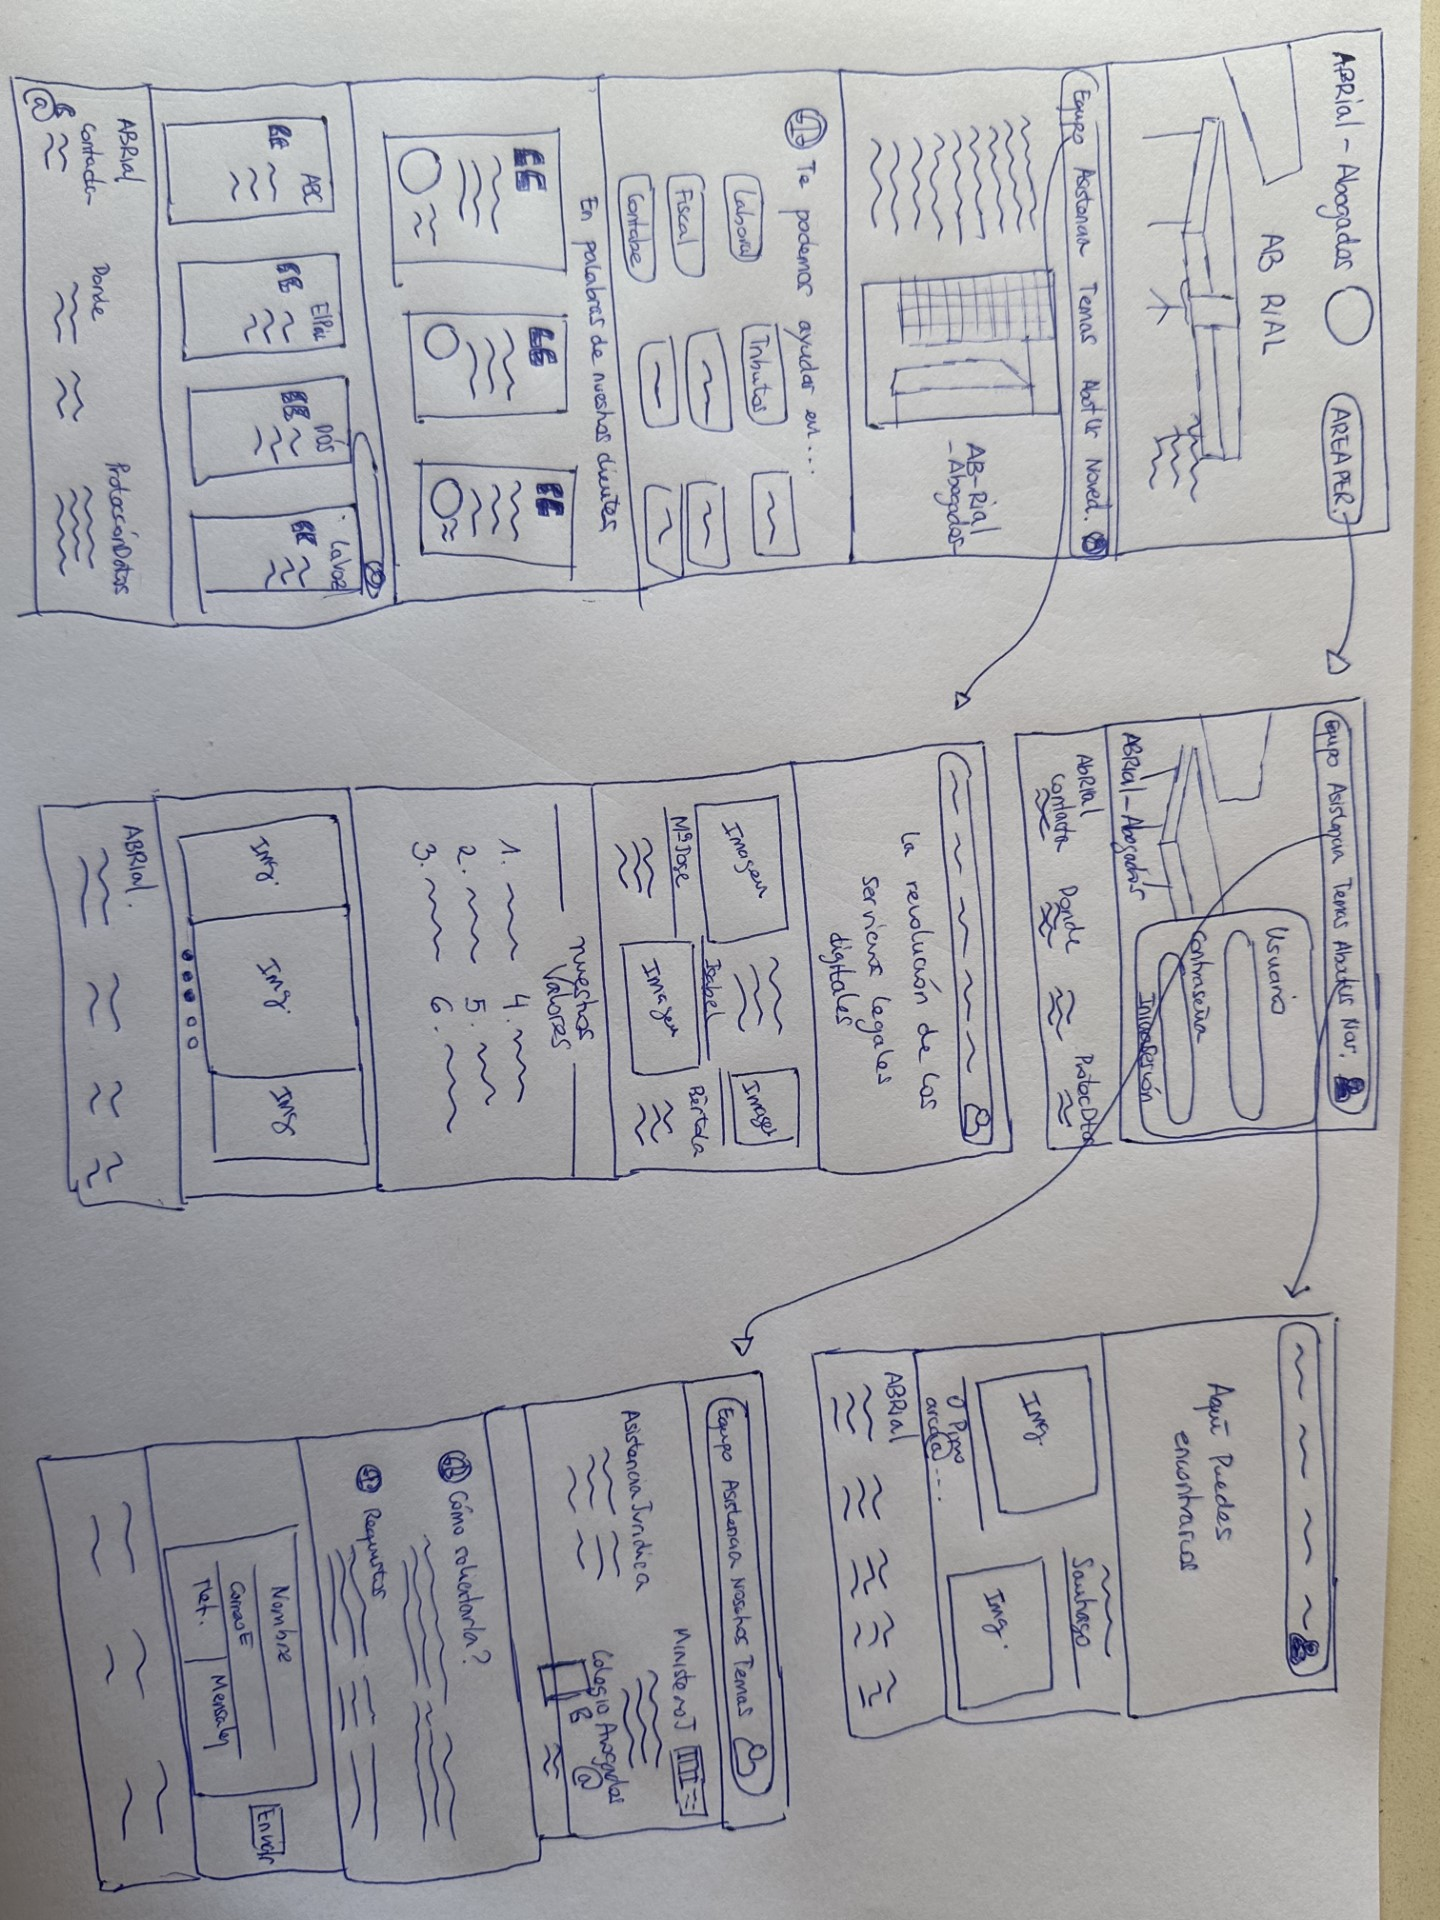 ABRial - Abogados
AREA PER.
AB RIAL
Equipo Asistencia Temas AbotUr Noved.
AB-Rial
- Abogados -
Te podemos ayudar en...
Laboral
Tributos
Fiscal
Contabe
En palabras de nuestros clientes
ABC
El País
La Voz
ABRial
Contacta
Donde
Protección Datos
Equipo Asistencia Temas Aboutus Nov.
Usuario
Contraseña
ABRial - Abogados
ABRial
Contacta
Donde
La revolución de los
servicios legales
digitales
Imagen
Imagen
Imagen
Mª Jose
Isabel
nuestros
Valores
1.
4.
2.
5.
3.
6.
Img.
Img.
Img
ABRial.
Aquí Puedes
encontrarnos
Img.
Santiago
Img.
ABRial
Equipo Asistencia Nosotros Temas
Asistencia Jurídica
Ministerio J
Colegio Avogados
Cómo solicitarla?
Requisitos
Nombre
CorreoE
Tlef.
Enviar